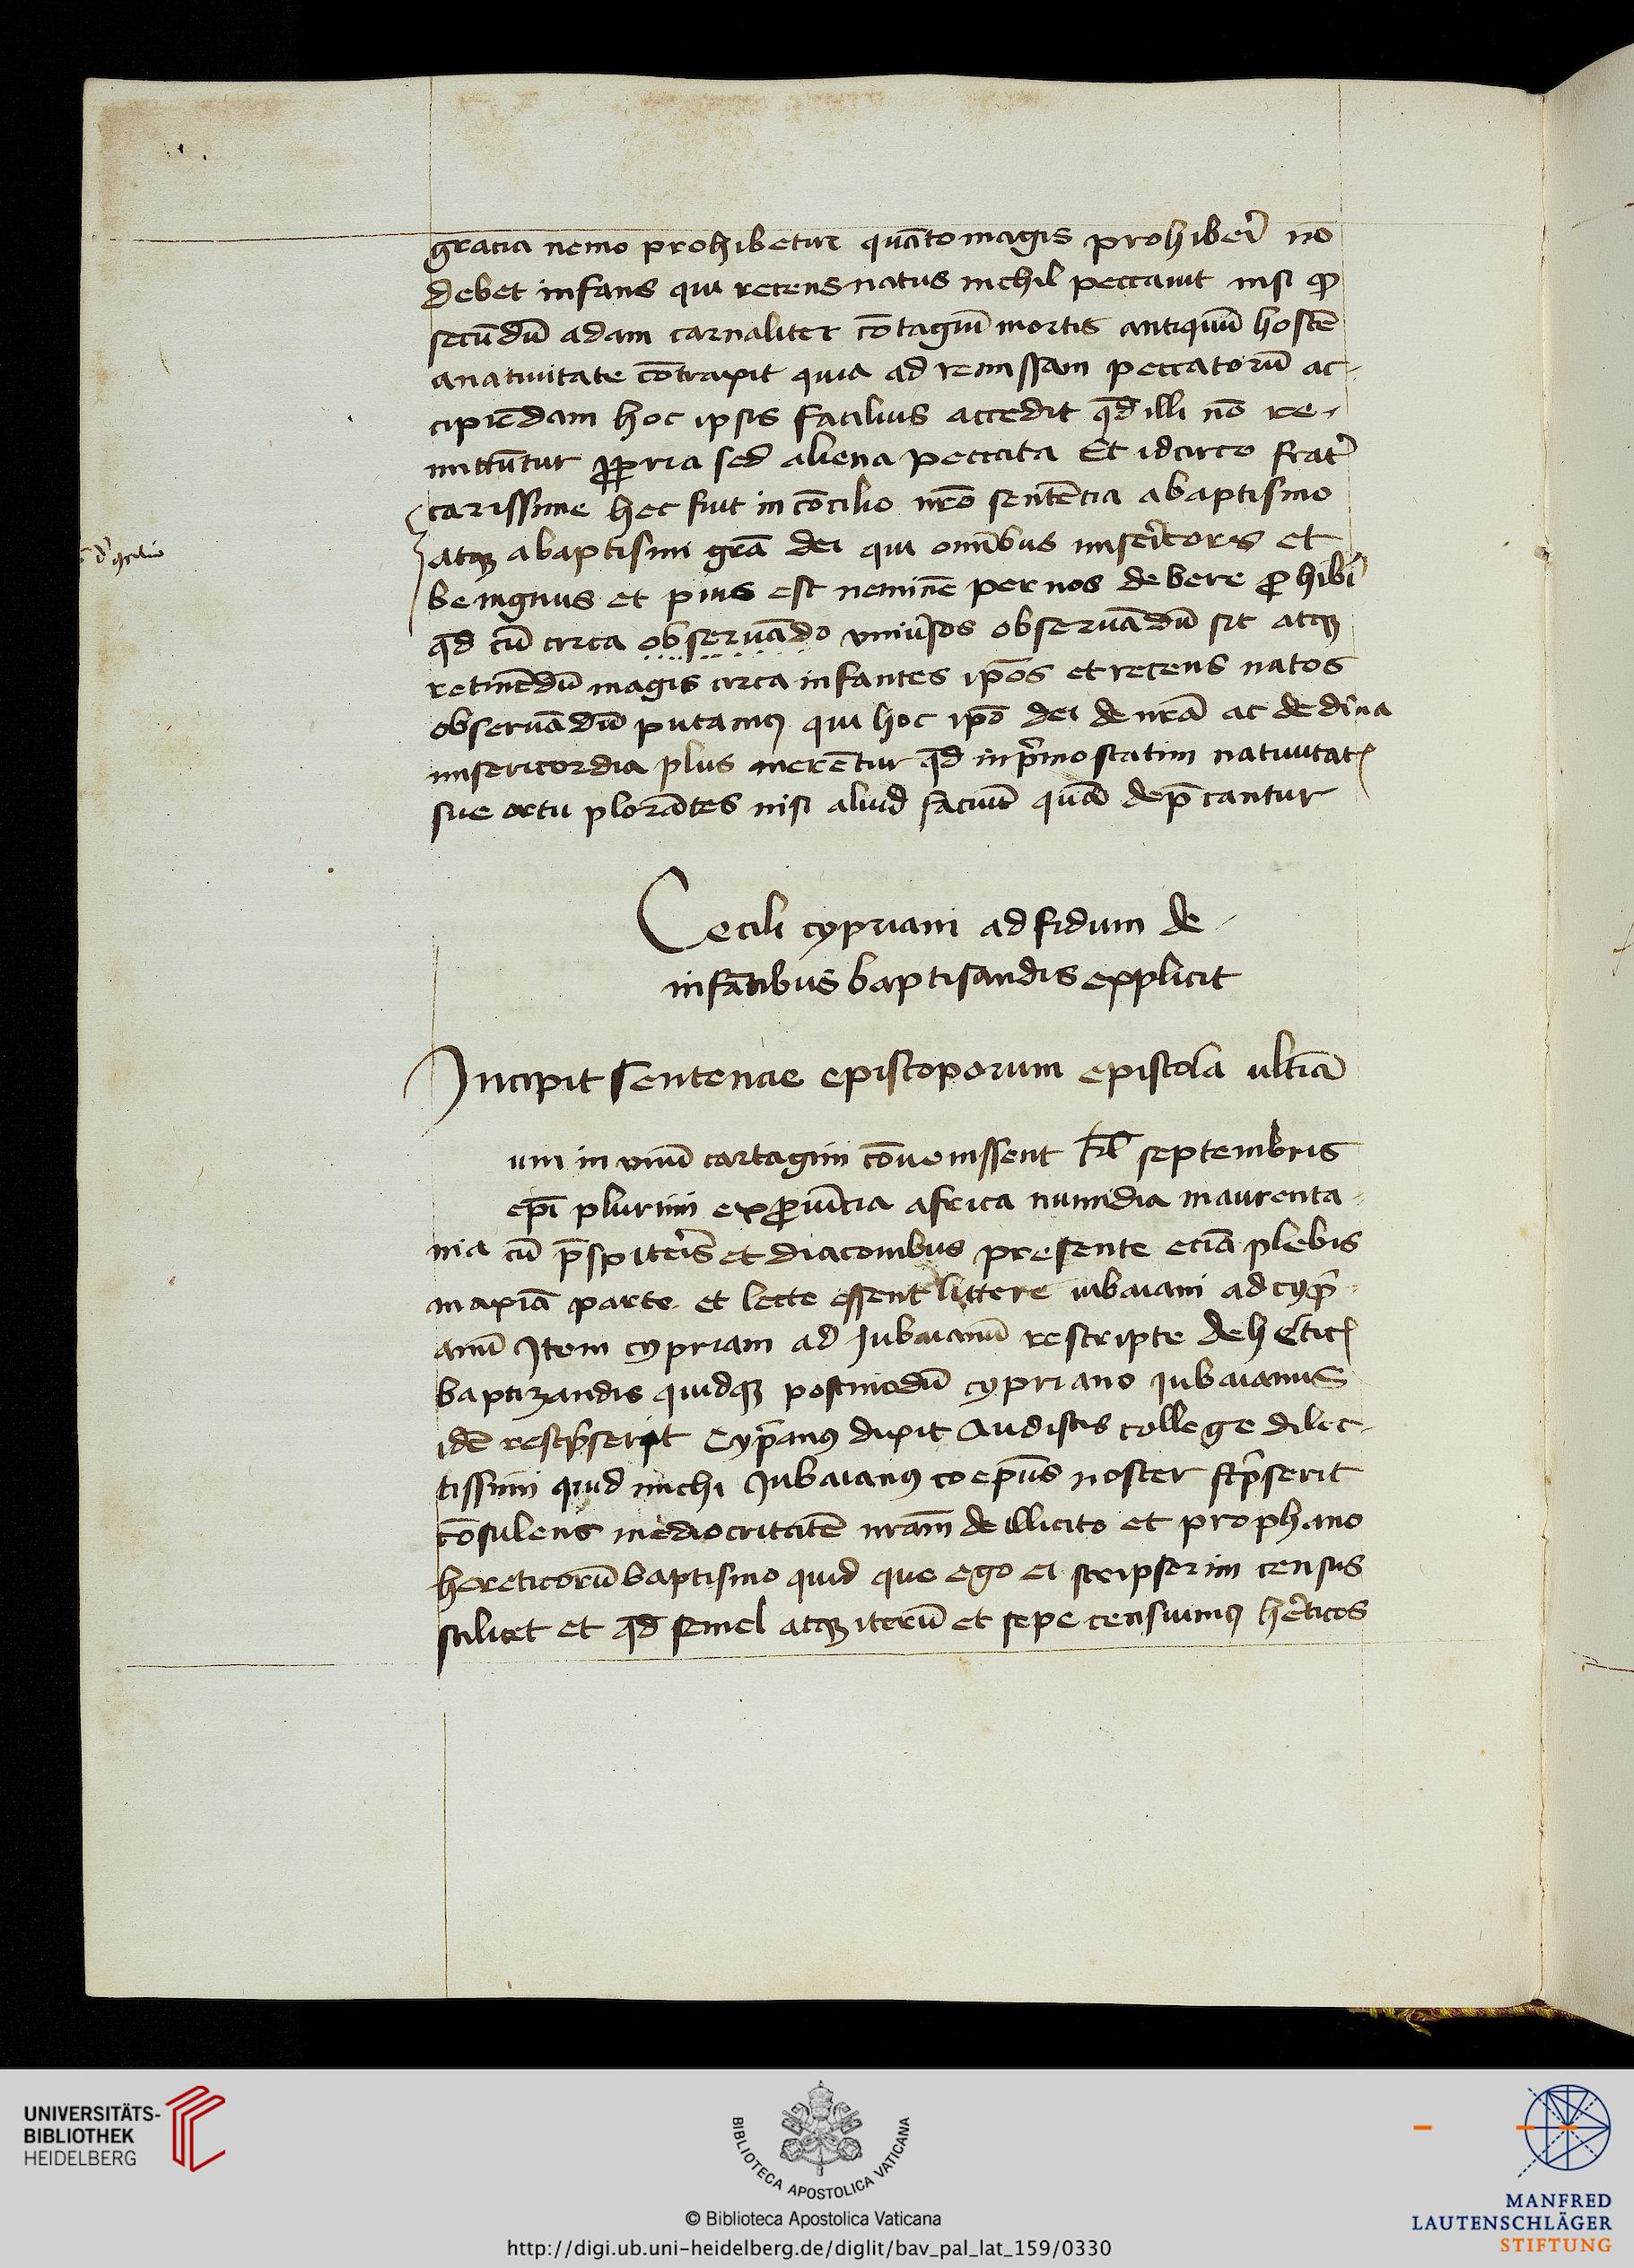 gracia nemo prohibetur quāto magis prohiberi nō
debet infans qui recens natus nichil peccauit nisi ꝙ
secūdū adam carnaliter cōtagiū mortis antiquū hostē
a natiuitate cōtraxit quia ad remissam peccatorū ac-
cipiēdam hoc ipsis facilius accedit qd illi nō re-
mittūtur ꝓpria sed aliena peccata Et idcirco frater
carissime hec fuit in cōcilio nrō sentētia abaptismo
atqꝫ abaptismi grā dei qui omībus misericors et
benignus et pius est neminē per nos debere ꝓhiberi
qd cū circa obseruādo vniuersos obseruādū sit atqꝫ
retinēdū magis circa infantes ipōs et recens natos
obseruādū putamꝰ qui hoc ipō dei de nrā ac de diuina
misericordia plus merētur qd in primo statim natiuitatis
sue ortu plorātes nisi aliud faciūt quā dep̄cantur
Cecili cypriani ad fidum de
infātibus baptisandis explicit
Incipit sentencie episcoporum epistola ultīa
um in vnū cartagini cōuenissent kl̄ septembris
ep̄i plurimi ex ꝓuīcia africa numidia maurenta
nia cū p̄spiteris et diaconibus presente eciā plebis
maxīa parte et lecte essent littere iubaiani ad cypri
anū Item cypriani ad Iubaianū rescripte de hereticis
baptizandis quidqꝫ postmodū cypriano Iubaianus
idē rescripserit Cyprianꝰ dixit Audistis college dilec-
tissimi quid michi Iubaianꝰ coep̄us noster scripserit
cōsulens mediocritatē nrām de illicito et prophano
hereticorū baptismo quid que ego ei scripserim census
scilicet et qd semel atqꝫ iterū et sepe censuimꝰ hereticos
UNIVERSITÄTS-
BIBLIOTHEK
HEIDELBERG
BIBLIOTECA APOSTOLICA VATICANA
© Biblioteca Apostolica Vaticana
http://digi.ub.uni-heidelberg.de/diglit/bav_pal_lat_159/0330
MANFRED
LAUTENSCHLÄGER
STIFTUNG